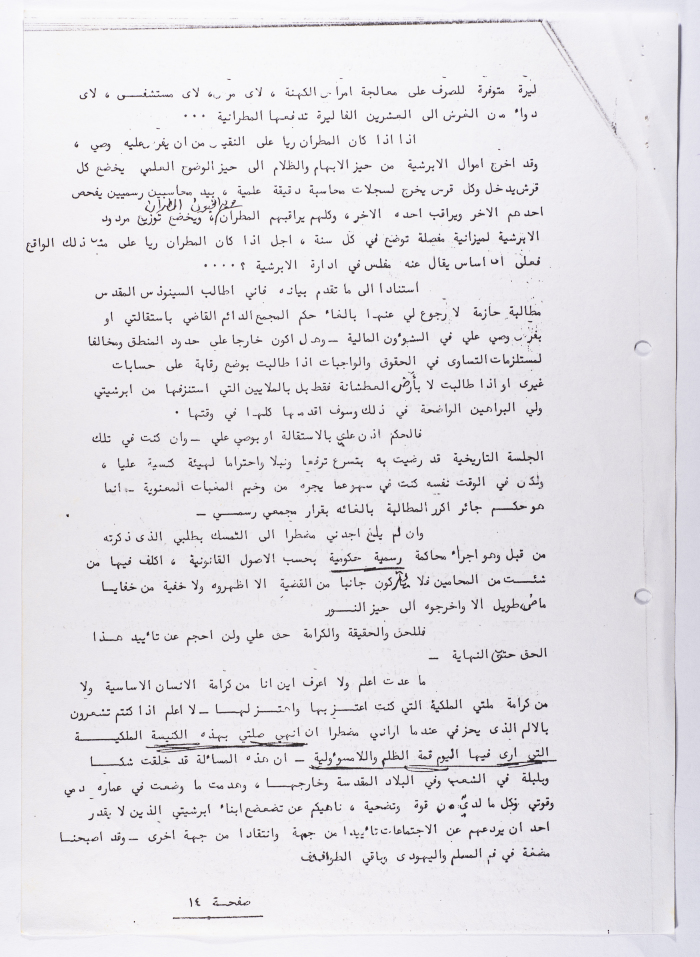 ليرة متوفرة للصرف على معالجة امراض الكهنة ، لاى مرض، لاى مستشفى ، لاى
دواء من القرش الى العشرين الفا ليرة تدفعها المطرانية ٠٠٠
اذا اذا كان المطران ريا على النقيض من ان يفرض عليه وصي ،
وقد اخرج اموال الابرشية من حيز الابهام والظلام الى حيز الوضوح العلمي يخضع كل
قرش يدخل وكل قرش يخرج لسجلات محاسبة دقيقة علمية ، بيد محاسبين رسميين يفحص
احدهم الاخر ويراقب احده الاخر ، وكلهم يراقبهم المطران ، ويخضع توزيع مردود
الابرشية لميزانية مفصلة توضع في كل سنة ، اجل اذا كان المطران ريا على مثل ذلك الواقع
فعلى اى اساس يقال عنه مفلس في ادارة الابرشية ؟ ٠٠٠٠
استنادا الى ما تقدم بيانه فاني اطالب السينوذس المقدس
مطالبة حازمة لا رجوع لي عنها بالغاء حكم المجمع الدائم القاضي باستقالتي او
بفرض وصي علي في الشؤون المالية - وهل اكون خارجا على حدود المنطق ومخالفا
لمستلزمات التساوى في الحقوق والواجبات اذا طالبت بوضع رقابة على حسابات
غيرى او اذا طالبت لا بأرض العطشانة فقط بل بالملايين التي استنزفها من ابرشيتي
ولي البراهين الواضحة في ذلك وسوف اقدمها كلها في وقتها ٠
فالحكم اذن علي بالاستقالة او بوصي علي - وان كنت في تلك
الجلسة التاريخية قد رضيت به بتسرع ترفعا ونبلا واحتراما لهيئة كنسية عليا ،
ولكن في الوقت نفسه كنت في سهو عما يجره من وخيم المغبات المعنوية - انما
هو حكم جائر اكرر المطالبة بالغائه بقرار مجمعي رسمي -
وان لم يلغ اجدني مضطرا الى التمسك بطلبي الذى ذكرته
من قبل وهو اجراء محاكمة رسمية حكومية بحسب الاصول القانونية ، اكلف فيها من
شئت من المحامين فلا يتركون جانبا من القضية الا اظهروه ولا خفية من خفايا
ماض طويل الا واخرجوه الى حيز النور
فللحق والحقيقة والكرامة حق علي ولن احجم عن تأييد هذا
الحق حتى النهاية -
ما عدت اعلم ولا اعرف اين انا من كرامة الانسان الاساسية ولا
من كرامة ملتي الملكية التي كنت اعتز بها واهتز لها - لا اعلم اذا كنتم تشعرون
بالالم الذى يحز في عندما اراني مضطرا ان انهي صلتي بهذه الكنيسة الملكية
التي ارى فيها اليوم قمة الظلم واللامسؤولية - ان هذه المسألة قد خلقت شكا
وبلبلة في الشعب وفي البلاد المقدسة وخارجها ، وهدمت ما وضعت في عماره دمي
وقوتي وكل ما لدي من قوة وتضحية ، ناهيكم عن تضعضع ابناء ابرشيتي الذين لا يقدر
احد ان يردعهم عن الاجتماعات تأييدا من جهة وانتقادا من جهة اخرى - وقد اصبحنا
مضغة في فم المسلم واليهودى وباقي الطوائف
صفحة ١٤